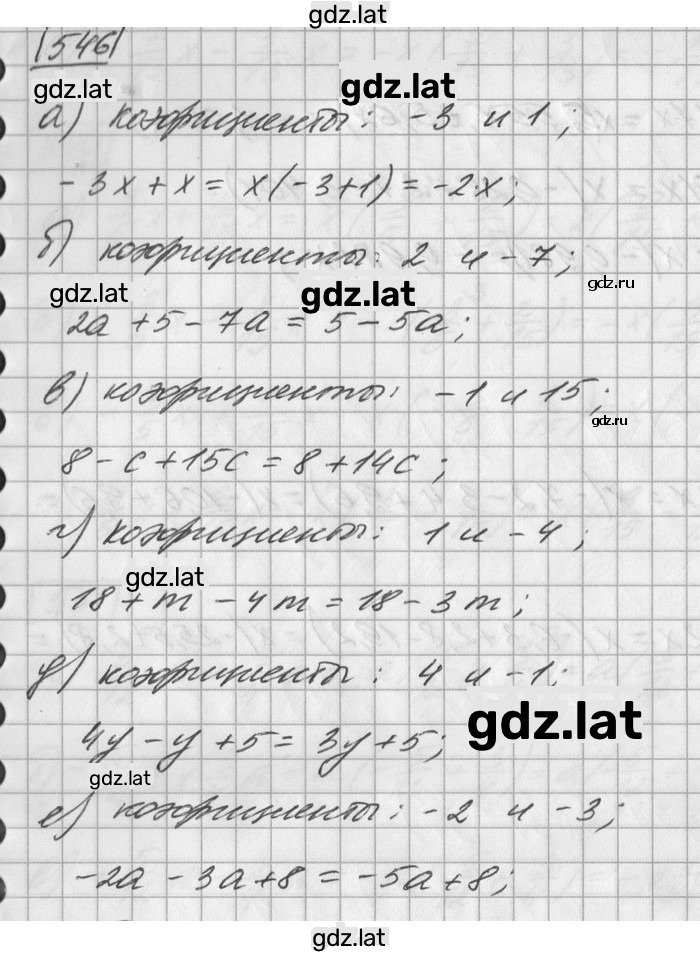 gdz.lat
546
gdz.lat
gdz.lat
а) коэфициенты: -3 и 1;
-3x + x = x(-3+1) = -2·x;
б) коэфициенты: 2 и -7;
gdz.ru
gdz.lat
gdz.lat
2a + 5 - 7a = 5 - 5a;
в) коэфициенты: -1 и 15;
gdz.ru
8 - c + 15c = 8 + 14c;
г) коэфициенты: 1 и -4;
gdz.lat
18 + m - 4m = 18 - 3m;
д) коэфициенты: 4 и -1;
gdz.lat
4y - y + 5 = 3y + 5;
gdz.lat
е) коэфициенты: -2 и -3;
-2a - 3a + 8 = -5a + 8;
gdz.lat